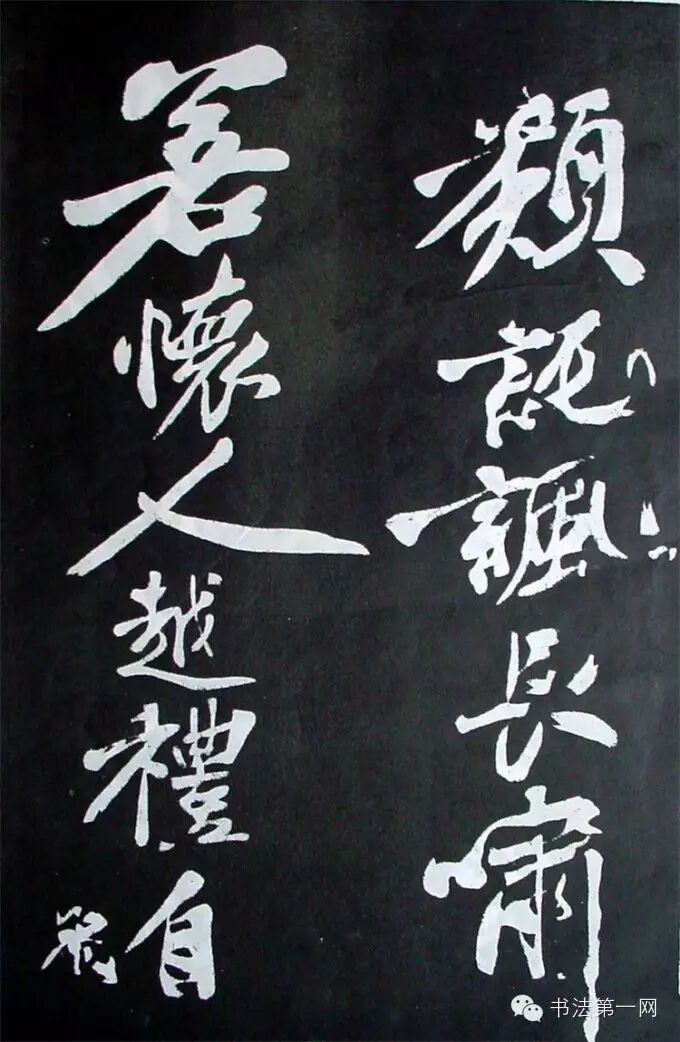 類託諷長嘯
若懷人越禮自
衆
书法第一网